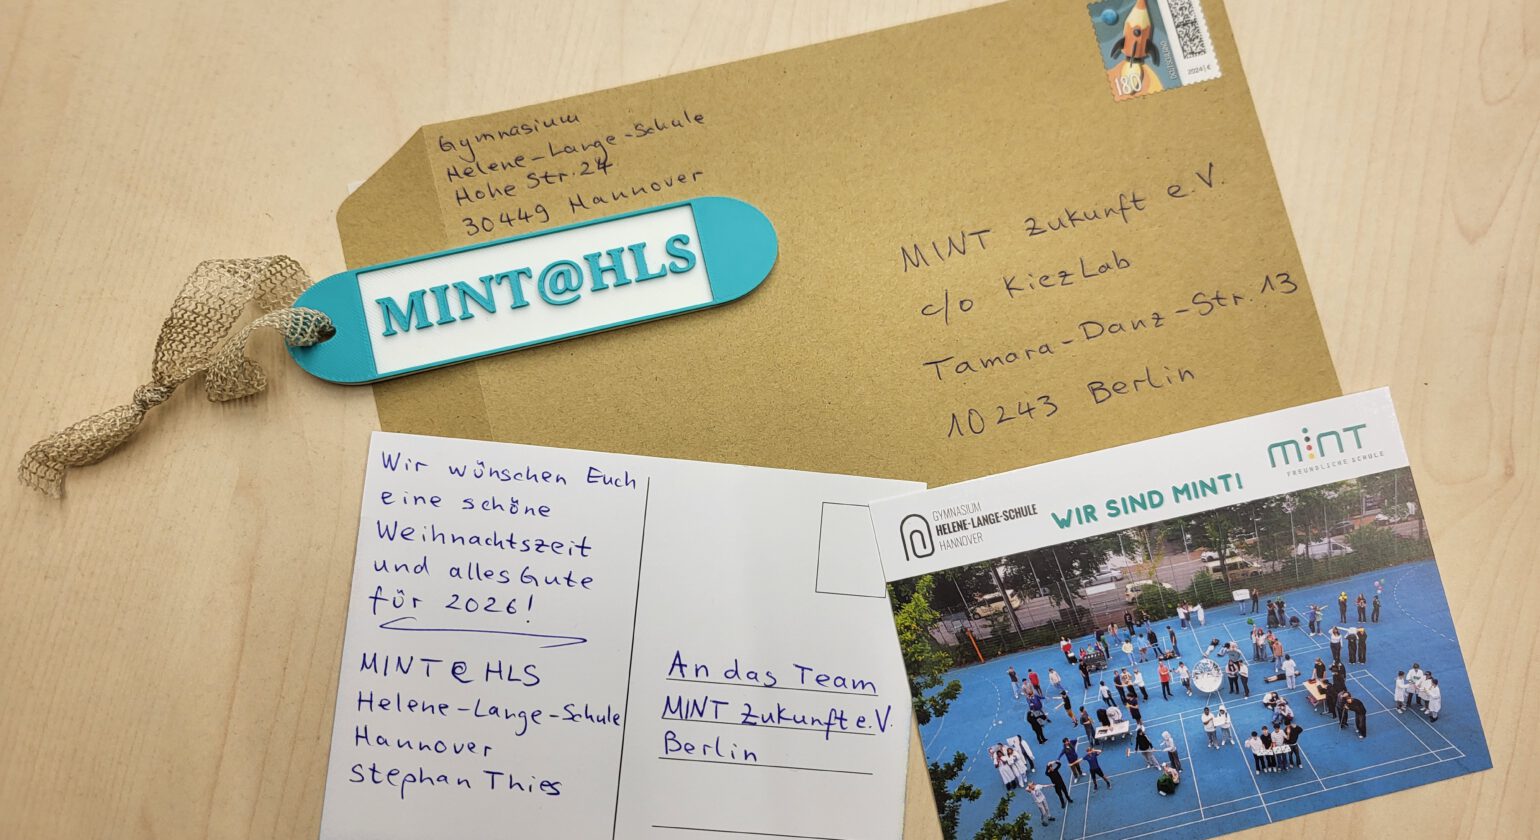 Gymnasium
Helene-Lange-Schule
Hohe Str. 24
30449 Hannover
180
DEUTSCHLAND
2024 | €
MINT Zukunft e.V.
c/o KiezLab
Tamara-Danz-Str. 13
10243 Berlin
MINT@HLS
Wir wünschen Euch
eine schöne
Weihnachtszeit
und alles Gute
für 2026!
MINT@HLS
Helene-Lange-Schule
Hannover
Stephan Thies
An das Team
MINT Zukunft e.V.
Berlin
GYMNASIUM
HELENE-LANGE-SCHULE
HANNOVER
WIR SIND MINT!
MINT
FREUNDLICHE SCHULE